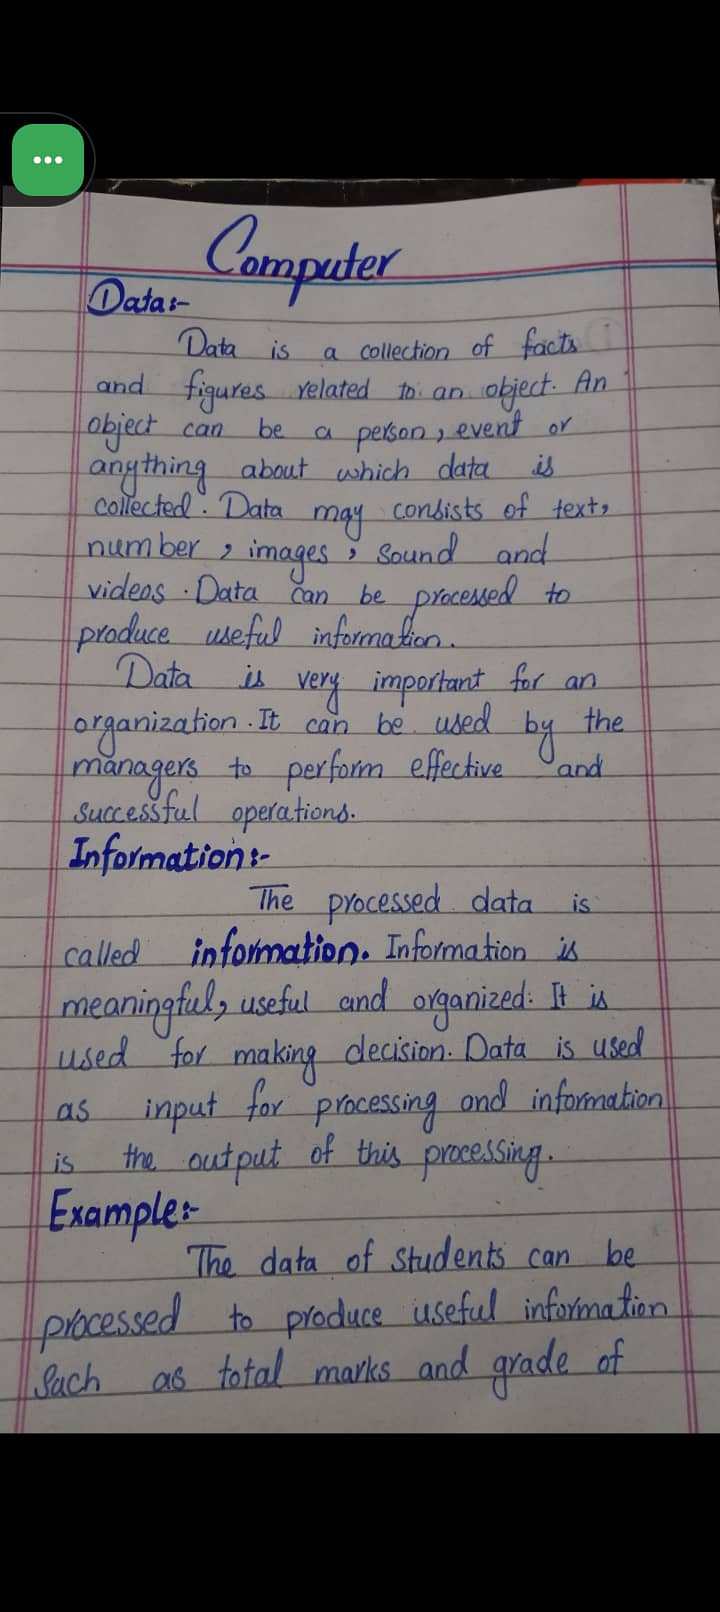 Computer
Data:-
Data is a collection of facts
and figures related to an object. An
object can be a person, event or
anything about which data is
collected. Data may consists of text,
number, images, Sound and
videos. Data can be processed to
produce useful information.
Data is very important for an
organization. It can be used by the
managers to perform effective and
successful operations.
Information:-
The processed data is
called information. Information is
meaningful, useful and organized. It is
used for making decision. Data is used
as input for processing and information
is the output of this processing.
Example:-
The data of students can be
processed to produce useful information
Such as total marks and grade of